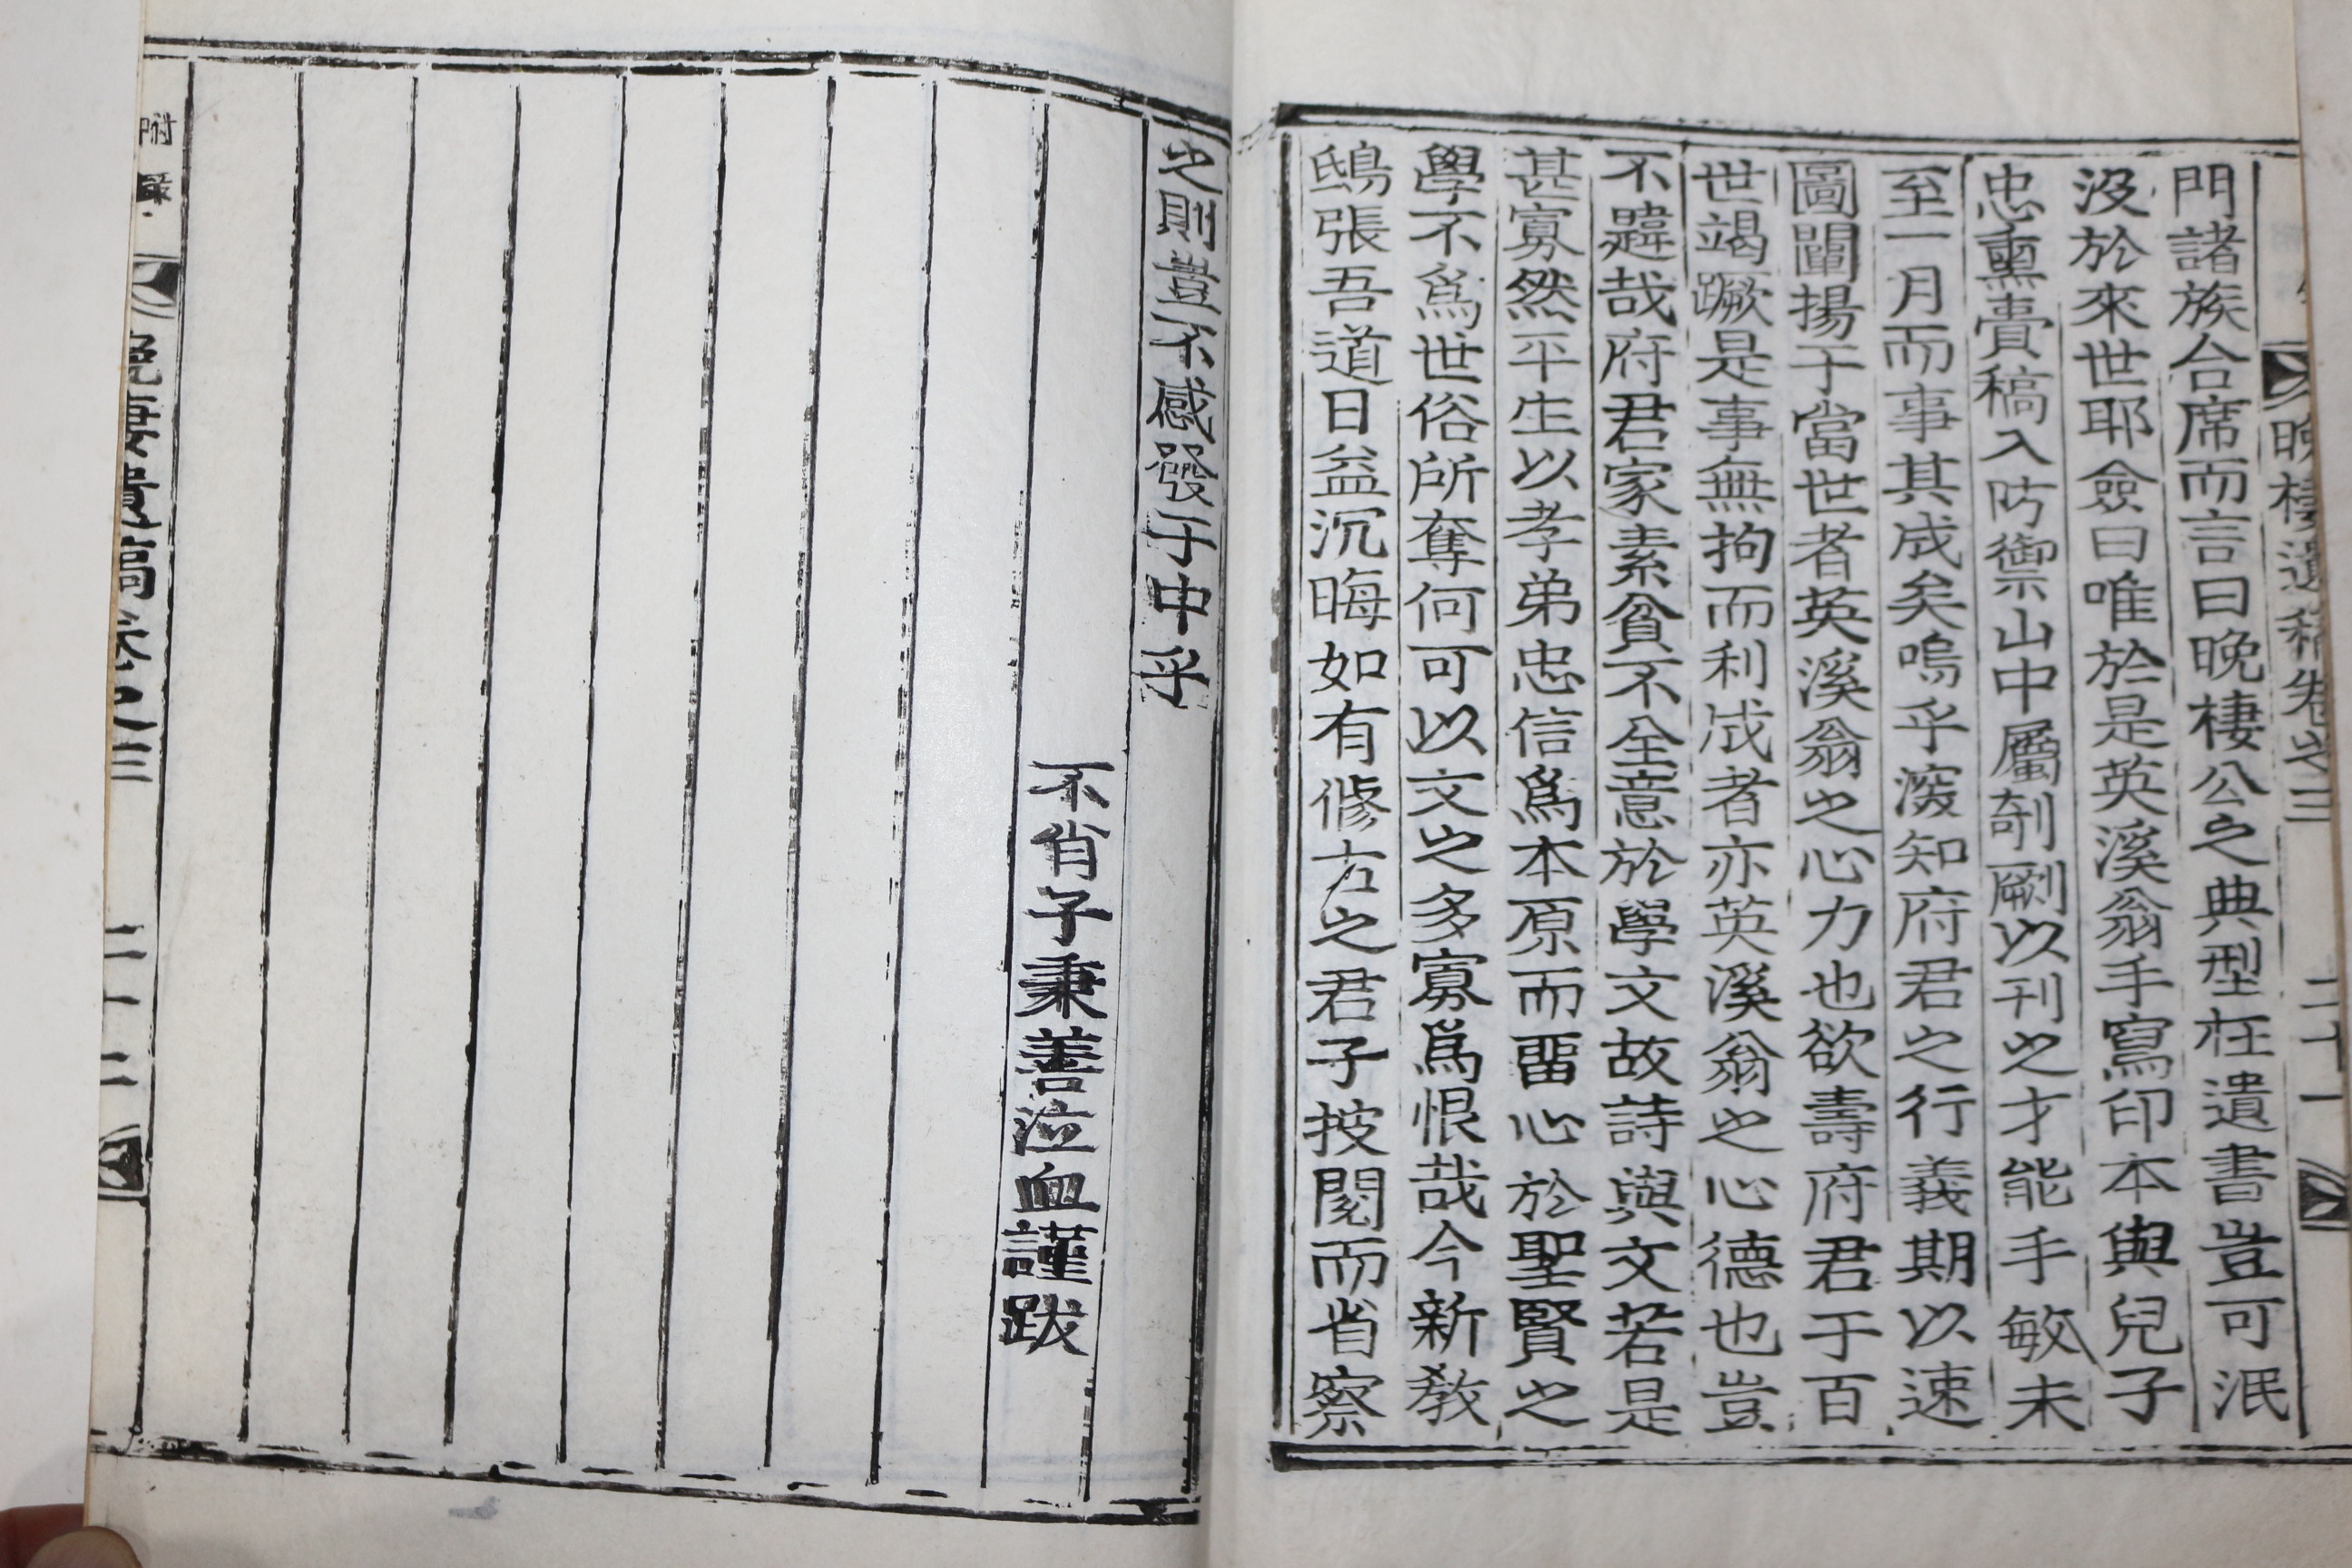 晩棲遺稿卷之三 二十一
門諸族合席而言曰晩棲公之典型在遺書豈可泯
沒於來世耶僉曰唯於是英溪翁手寫印本與兒子
忠熏賷稿入防禦山中屬剞劂以刊之才能手敏未
至一月而事其成矣嗚乎深知府君之行義期以速
圖闡揚于當世者英溪翁之心力也欲壽府君于百
世竭蹶是事無拘而利成者亦英溪翁之心德也豈
不韙哉府君家素貧不全意於學文故詩與文若是
甚寡然平生以孝弟忠信爲本原而留心於聖賢之
學不爲世俗所奪何可以文之多寡爲恨哉今新敎
鴟張吾道日益沉晦如有修古之君子按閱而省察
之則豈不感發于中乎
不肖子秉善泣血謹跋
附錄 晩棲遺稿卷之三 二十二